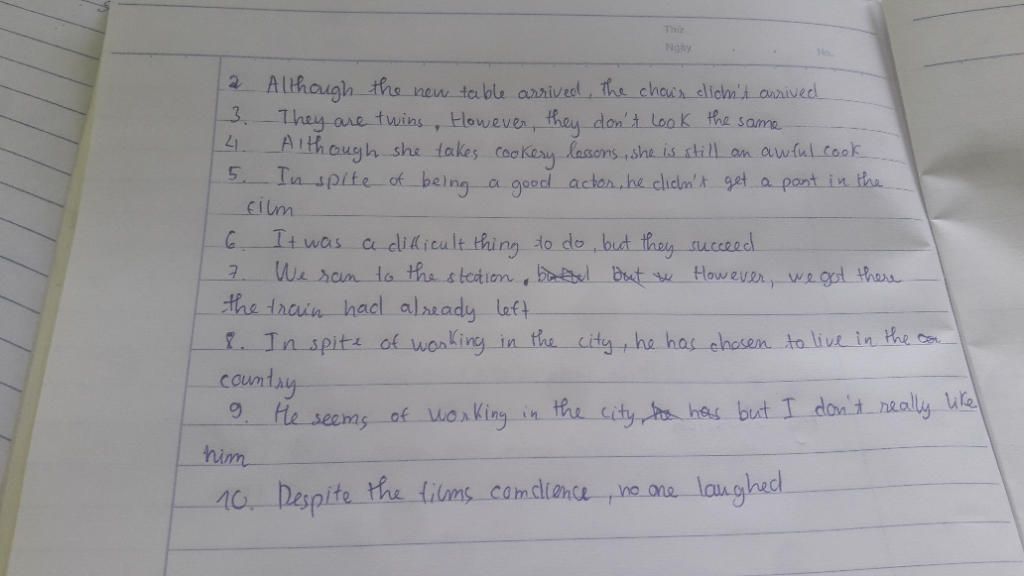 Thứ
Ngày
No.
2 Although the new table arrived, the chair didn't arrived
3. They are twins. However, they don't look the same
4 Although she takes cookery lessons, she is still an awful cook
5. In spite of being a good actor, he didn't get a part in the
film
6. It was a difficult thing to do, but they succeed
7. We ran to the station. but However, we got there
the train had already left
8. In spite of working in the city, he has chosen to live in the
country
9. He seems of working in the city, he has but I don't really like
him
10. Despite the films, no one laughed